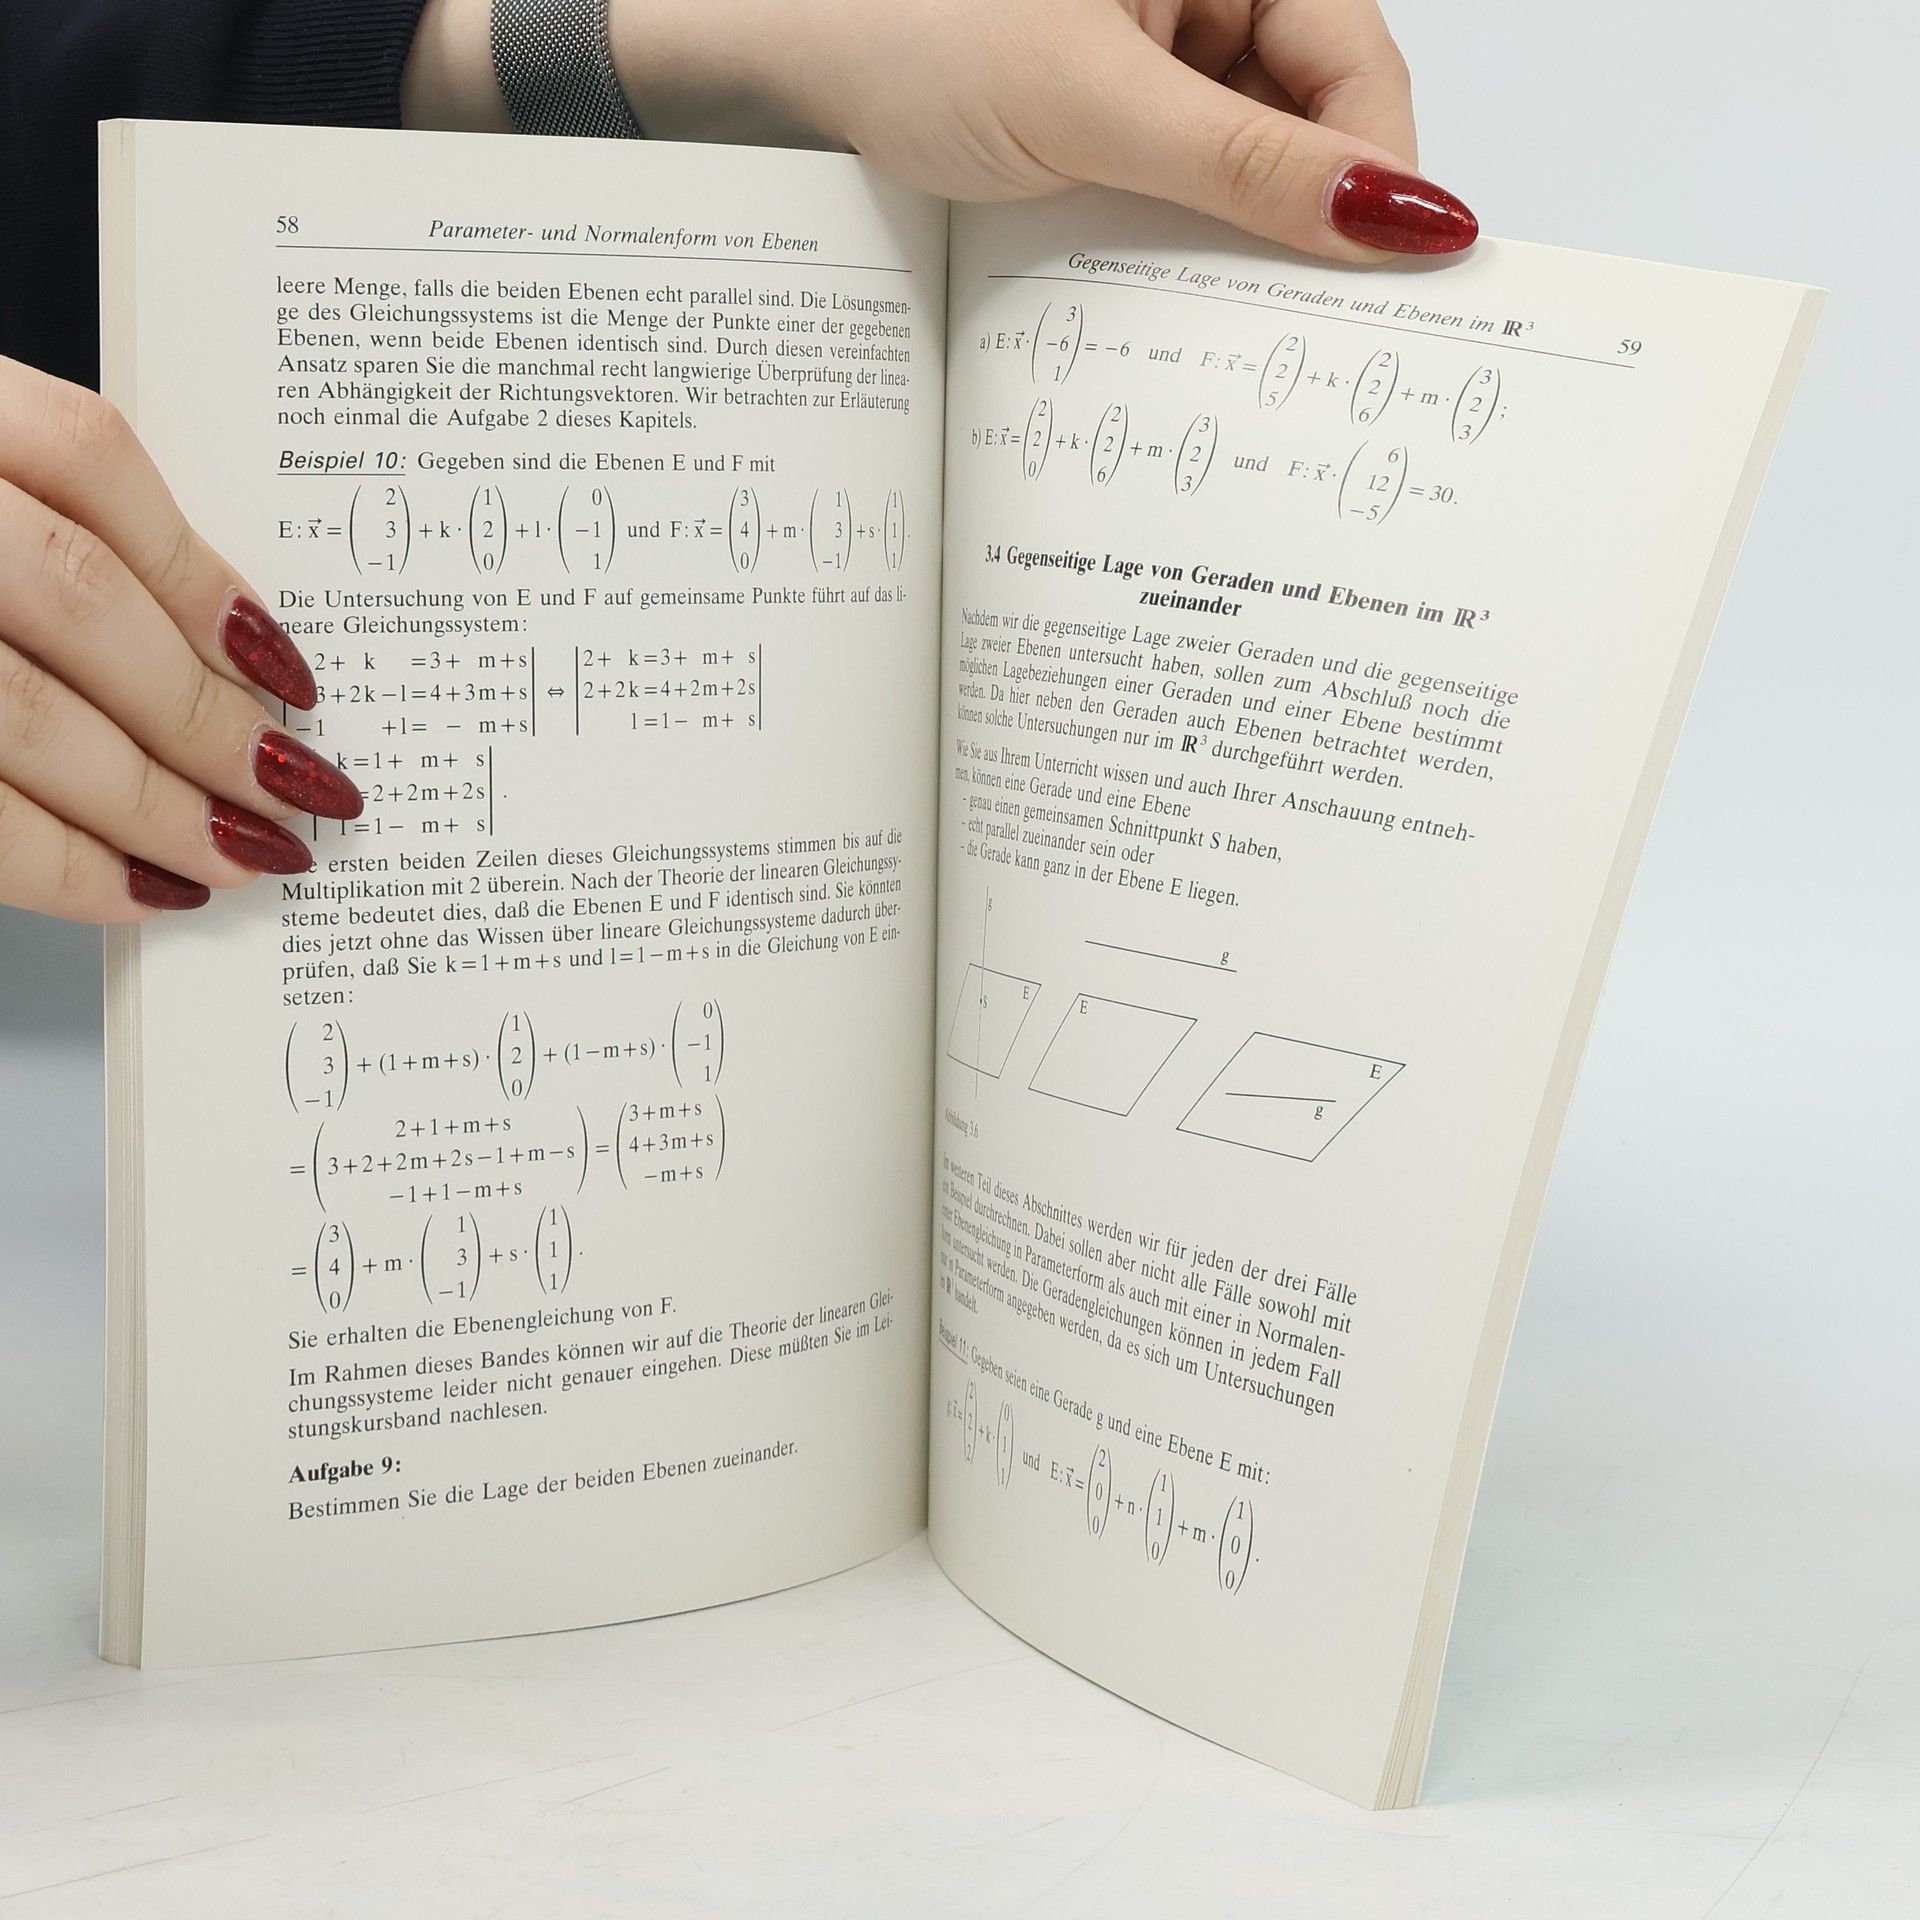 58 Parameter- und Normalenform von Ebenen
leere Menge, falls die beiden Ebenen echt parallel sind. Die Lösungsmen-
ge des Gleichungssystems ist die Menge der Punkte einer der gegebenen
Ebenen, wenn beide Ebenen identisch sind. Durch diesen vereinfachten
Ansatz sparen Sie die manchmal recht langwierige Überprüfung der linea-
ren Abhängigkeit der Richtungsvektoren. Wir betrachten zur Erläuterung
noch einmal die Aufgabe 2 dieses Kapitels.
Beispiel 10: Gegeben sind die Ebenen E und F mit
E: x⃗ = (2 3 −1) + k · (1 2 0) + l · (0 −1 1) und F: x⃗ = (3 4 0) + m · (1 3 −1) + s · (1 1 1).
Die Untersuchung von E und F auf gemeinsame Punkte führt auf das li-
neare Gleichungssystem:
2+ k =3+ m+s| |2+ k=3+ m+ s|
3+2k−l=4+3m+s| ⇔ |2+2k=4+2m+2s|
−1 +l= − m+s| | l=1− m+ s|
k=1+ m+ s|
=2+2m+2s| .
| l=1− m+ s|
ersten beiden Zeilen dieses Gleichungssystems stimmen bis auf die
Multiplikation mit 2 überein. Nach der Theorie der linearen Gleichungssy-
steme bedeutet dies, daß die Ebenen E und F identisch sind. Sie könnten
dies jetzt ohne das Wissen über lineare Gleichungssysteme dadurch über-
prüfen, daß Sie k=1+m+s und l=1−m+s in die Gleichung von E ein-
setzen:
(2 3 −1) + (1+m+s) · (1 2 0) + (1−m+s) · (0 −1 1)
= (2+1+m+s 3+2+2m+2s−1+m−s −1+1−m+s) = (3+m+s 4+3m+s −m+s)
= (3 4 0) + m · (1 3 −1) + s · (1 1 1).
Sie erhalten die Ebenengleichung von F.
Im Rahmen dieses Bandes können wir auf die Theorie der linearen Glei-
chungssysteme leider nicht genauer eingehen. Diese müßten Sie im Lei-
stungskursband nachlesen.
Aufgabe 9:
Bestimmen Sie die Lage der beiden Ebenen zueinander.
Gegenseitige Lage von Geraden und Ebenen im ℝ³ 59
a) E: x⃗ · (3 −6 1) = −6 und F: x⃗ = (2 2 5) + k · (2 2 6) + m · (3 2 3);
b) E: x⃗ = (2 2 0) + k · (2 2 6) + m · (3 2 3) und F: x⃗ · (6 12 −5) = 30.
3.4 Gegenseitige Lage von Geraden und Ebenen im ℝ³
zueinander
Nachdem wir die gegenseitige Lage zweier Geraden und die gegenseitige
Lage zweier Ebenen untersucht haben, sollen zum Abschluß noch die
möglichen Lagebeziehungen einer Geraden und einer Ebene bestimmt
werden. Da hier neben den Geraden auch Ebenen betrachtet werden,
können solche Untersuchungen nur im ℝ³ durchgeführt werden.
Wie Sie aus Ihrem Unterricht wissen und auch Ihrer Anschauung entneh-
men, können eine Gerade und eine Ebene
- genau einen gemeinsamen Schnittpunkt S haben,
- echt parallel zueinander sein oder
- die Gerade kann ganz in der Ebene E liegen.
g
g
S E
E
E
g
Abbildung 3.6
Im weiteren Teil dieses Abschnittes werden wir für jeden der drei Fälle
ein Beispiel durchrechnen. Dabei sollen aber nicht alle Fälle sowohl mit
einer Ebenengleichung in Parameterform als auch mit einer in Normalen-
form untersucht werden. Die Geradengleichungen können in jedem Fall
nur in Parameterform angegeben werden, da es sich um Untersuchungen
im ℝ³ handelt.
Beispiel 11: Gegeben seien eine Gerade g und eine Ebene E mit:
g: x⃗ = (2 2 2) + k · (0 1 1) und E: x⃗ = (2 0 0) + n · (1 1 0) + m · (1 0 0).